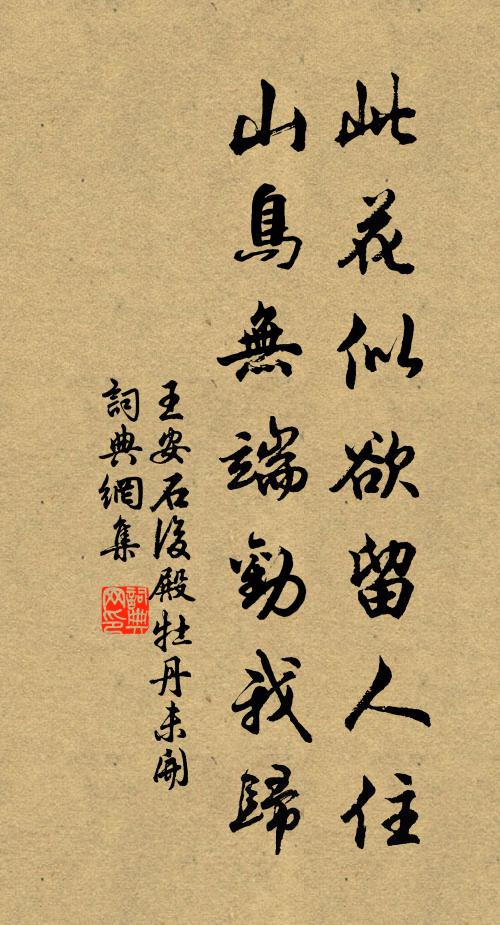 此花似欲留人住
山鳥無端勸我歸
王安石後殿牡丹未開
詞典網集
詞典网印